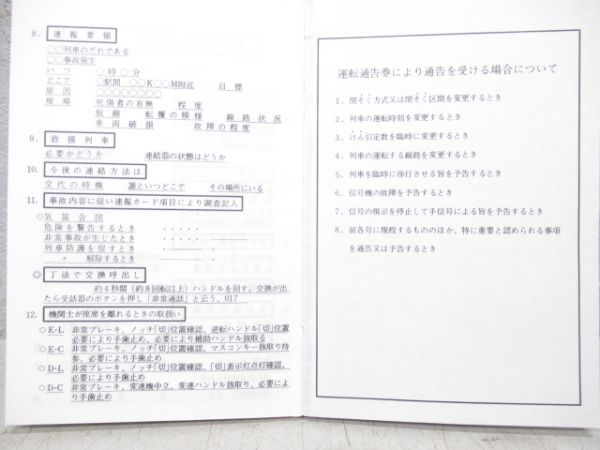 8. 速報要領
○○列車のだれである
○○事故発生
いつ ○時○分
どこで ○駅間 ○○K○○M附近 目標
原因 ○○○○○○○○
現場 死傷者の有無 程度
脱線 転覆の模様 線路状況
車両破損 故障の程度
9. 救援列車
必要かどうか 連結器の状態はどうか
10. 今後の連絡方法は
交代の時機 誰といつどこで その場所にいる
11. 事故内容に従い速報カード項目により調査記入
○気笛合図
危険を警告するとき ・・・・・
非常事故が生じたとき ・・・・・
列車防護を促すとき ・
〃 解除するとき ・
◎丁法で交換呼出し
約4秒間(約8回転以上)ハンドルを回す。交換が出
たら受話器のボタンを押し「非常通話」と云う、017
12. 機関士が座席を離れるときの取扱い
○E-L 非常ブレーキ、ノッチ「切」位置確認、逆転ハンドル「切」位置
必要により手歯止め、必要により補助ハンドル抜取る
○E-C 非常ブレーキ、ノッチ「切」位置確認、マスコンキー抜取り持
参、必要により手歯止め
○D-L 非常ブレーキ、ノッチ「切」位置確認、「切」表示灯点灯確認、
必要により手歯止め
○D-C 非常ブレーキ、変速機中立、変速ハンドル抜取り、必要によ
り手歯止め
運転通告券により通告を受ける場合について
1. 閉そく方式又は閉そく区間を変更するとき
2. 列車の運転時刻を変更するとき
3. けん引定数を臨時に変更するとき
4. 列車の運転する線路を変更するとき
5. 列車を臨時に徐行させる旨を予告するとき
6. 信号機の故障を予告するとき
7. 信号の現示を停止して手信号による旨を予告するとき
8. 前各号に規程するもののほか、特に重要と認められる事項
を通告又は予告するとき